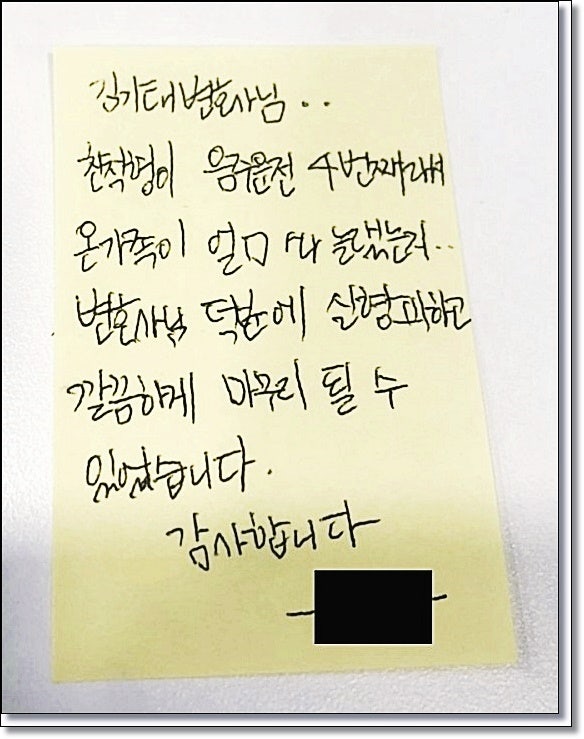 김기태변호사님..
음주운전 4번째라며
온가족이 얼마나 놀랬는지..
변호사님 덕분에 실형피하고
깔끔하게 마무리 될 수
있었습니다.
감사합니다